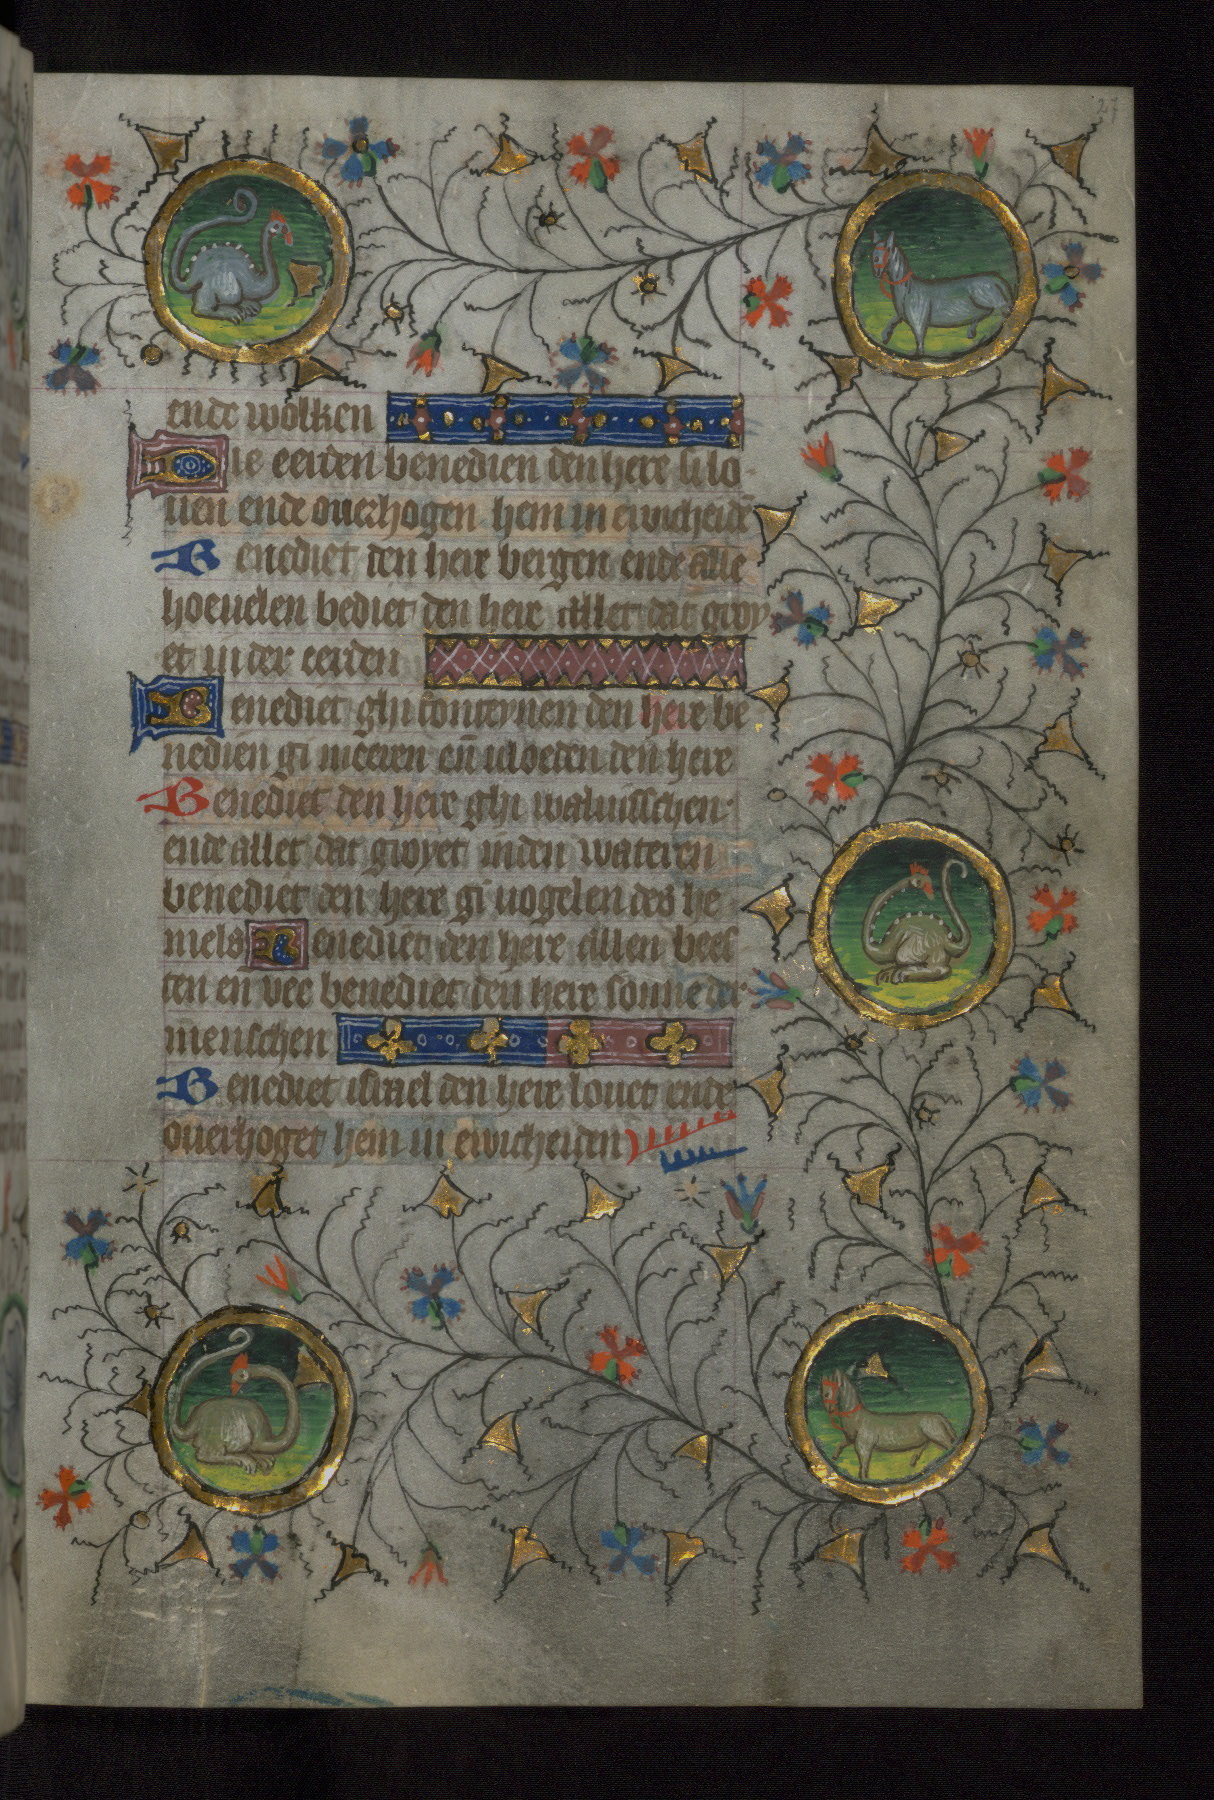 27
ende wolken
Die eerden benedien den here si lo
uen ende ouerhogen hem in ewicheidē
Benediet den here bergen ende alle
hoeuelen bediet den here Allet dat groy
et in der eerden
Benediet ghi fonteynen den here be
nedien gi meeren eñ vloeden den here
Benediet den here ghi waluisschen
ende allet dat groyet inden wateren
benediet den here gi uogelen des he
mels Benediet den here allen bees
ten eñ vee benediet den here sonne der
menschen
Benediet israel den here louet ende
ouerhoget hem in ewicheiden